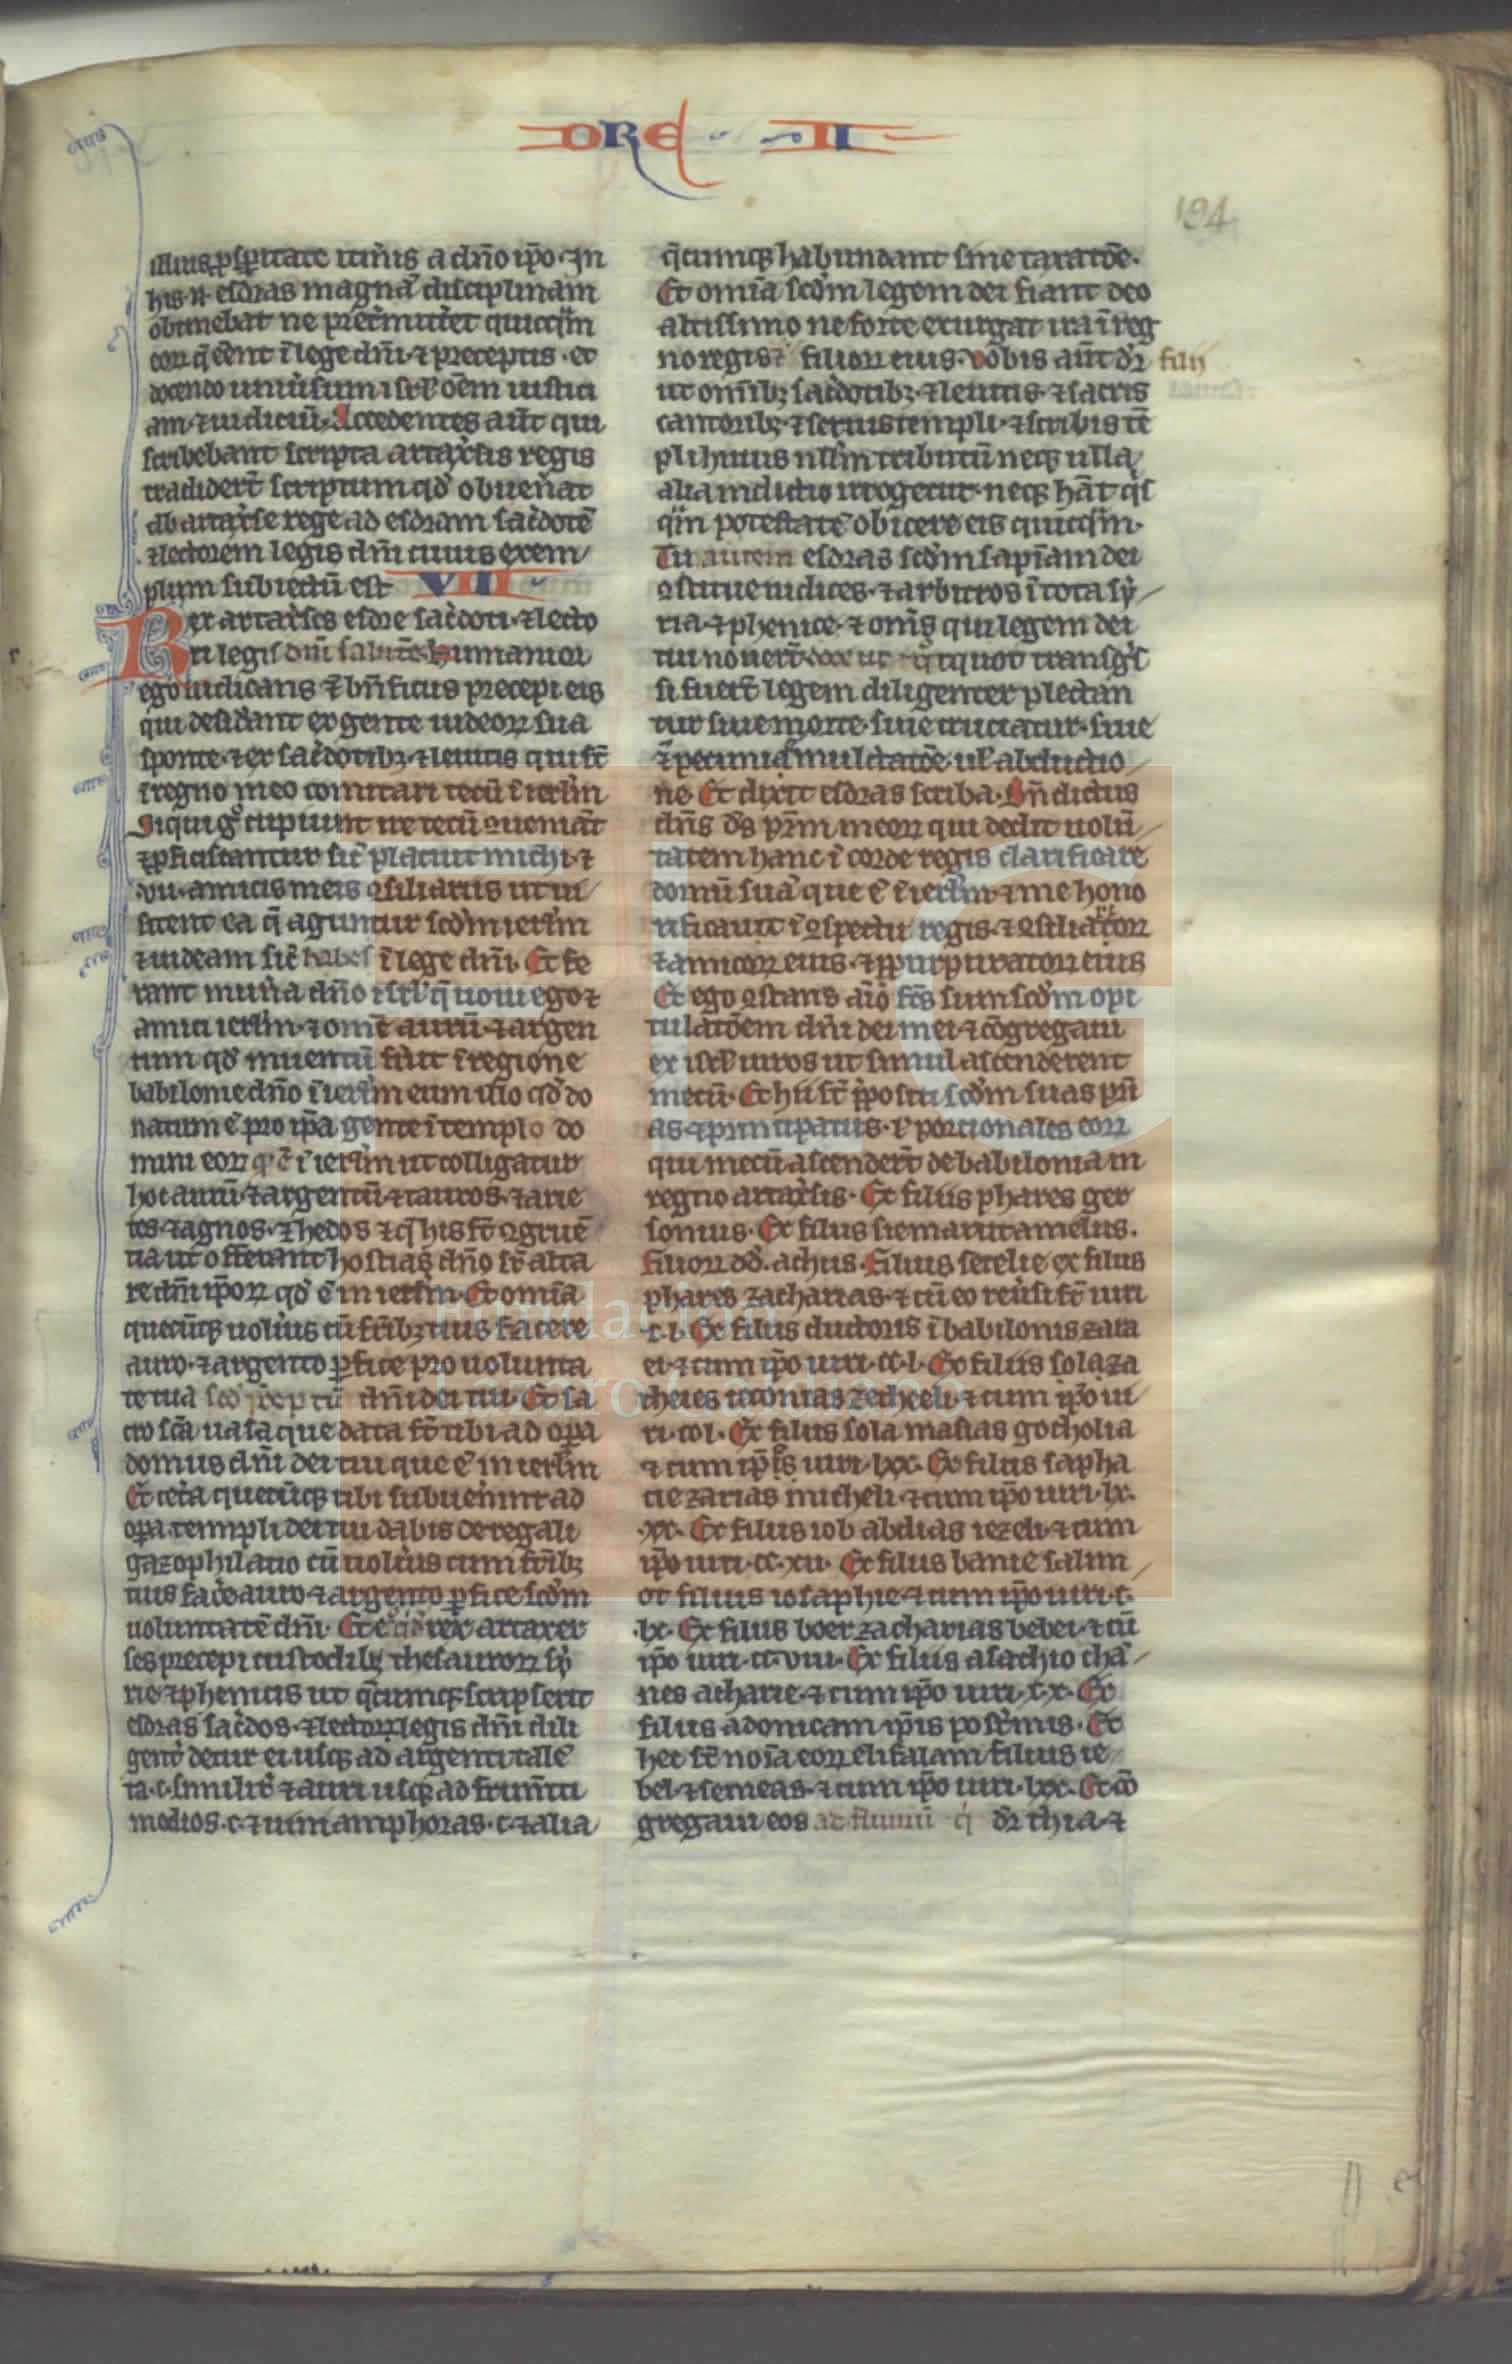 DRE II
194
illius ꝓsꝑitate itin̄is a dn̄o ip̄o · In
his n̄ esdras magnā disciplinam
obtinebat ne pret̄mitt̄et quicq̄m
eoꝝ q̄ eēnt ī lege dn̄i · ⁊ preceptis · et
docendo uniūsum isrl̄ oēm iustici
am · ⁊ iudiciū · Accedentes aūt qui
scribebant scripta artax̄sis regis
tradider̄t scriptum qd̄ obuen̄at
ab artax̄se rege ad esdram sac̄dotē
⁊ lectorem legis dn̄i cuius exem
plum subiectū est VIII
Rex artax̄ses esdre sac̄doti · ⁊ lecto
ri legis dn̄i salutē humanior
ego iudicans ⁊ bn̄ficus precepi eis
qui desid̄ant ex gente iudeoꝝ sua
sponte · ⁊ ex sac̄dotibꝫ · ⁊ leuitis qui st̄
ī regno meo comitari tecū ī ierl̄m
Si qui g̊ cupiunt ire tecū ꝯueniāt
⁊ ꝓficiscantur sic̄ placuit michi · ⁊
.vii. amicis meis ꝯsiliariis ut ui
sitent ea q̄ aguntur scd̄m ierl̄m
⁊ iudeam sic̄ habes ī lege dn̄i · Et fe
rant mun̄a dn̄o isrl̄ q̄ noui ego ⁊
amici ierl̄m · ⁊ omē aurū · ⁊ argen
tum qd̄ inuentū fūit ī regione
babilonie dn̄o ī ierl̄m cum illo qd̄ do
natum ē pro ip̄a gente ī templo do
mini eoꝝ q̄ ē ī ierl̄m ut colligatur
hoc aurū · ⁊ argentū · ⁊ tauros · ⁊ arie
tes · ⁊ agnos · ⁊ hedos ⁊ q̄ his st̄ ꝯgruē
tia ut offerant hostias dn̄o sr̄ alta
re dn̄i ip̄oꝝ qd̄ ē in ierl̄m · Et omīa
quecūqꝫ uolūis cū fr̄ibꝫ tuis facere
auro · ⁊ argento ꝑfice pro uolunta
te tua scd̄ p̄ceptū dn̄i dei tui · Et sa
cro sc̄a uasa que data st̄ tibi ad oꝑa
domus dn̄i dei tui que ē in ierl̄m
Et cet̄a quecūqꝫ tibi subuen̄int ad
oꝑa templi dei tui dabis de regali
gazophilatio cū uolūis cum fr̄ibꝫ
tuis fac̄e auro · ⁊ argento ꝑfice scd̄m
uoluntatē dn̄i · Et rex artaxer
ses precepi custodibꝫ thesauroꝝ sy
rie ⁊ phenicis ut q̄cumqꝫ scripserit
esdras sac̄dos · ⁊ lectoꝝ legis dn̄i dili
gent̄ detur ei usqꝫ ad argenti talē
ta · c · similit̄ ⁊ auri usqꝫ ad frum̄ti
modios · c · ⁊ uini amphoras · c · ⁊ alia
q̄cumqꝫ habundant sine taxatōe ·
Et omīa scd̄m legem dei fiant deo
altissimo ne forte exurgat ira ī reg
no regis ⁊ filioꝝ eius · vobis aūt dr̄ filij
ut omībꝫ sac̄dotibꝫ · ⁊ leuitis · ⁊ sacris
cantoribꝫ · ⁊ seruis templi · ⁊ scribis tē
pli huius nullm̄ tributū neqꝫ ulla
alia indictio irrogetur · neqꝫ hāt q̄s
q̄m potestatē obicere eis quicq̄m ·
Tu autem esdras scd̄m sapīam dei
ꝯstitue iudices · ⁊ arbitros ī tota sy
ria · ⁊ phenice · ⁊ om̄s qui legem dei
tui nouer̄t doce ut q̄tquot transḡs
si fuer̄t legem diligenter plectan
tur siue morte · siue cruciatur · siue
⁊ pecunie multatōe · ul̄ abductio
ne · Et dixit esdras scriba · Bn̄dictus
dn̄s ds̄ pr̄m meoꝝ qui dedit uolū
tatem hanc ī corde regis clarificare
domū suā que ē ī ierl̄m · ⁊ me hono
rificauit ī ꝯspectu regis · ⁊ ꝯsiliarioꝝ
⁊ amicoꝝ eius · ⁊ purpuratoꝝ eius
Et ego ꝯstans aīo fc̄s sum scd̄m opi
tulatōem dn̄i dei mei ⁊ cōgregaui
ex isrl̄ uiros ut simul ascenderent
mecū · Et hii st̄ p̄positi scd̄m suas pr̄i
as · ⁊ principatus · ī portionales eoꝝ
qui mecū ascender̄t de babilonia in
regno artax̄sis · Ex filiis phares ger
somus · Ex filius siemarith amelus ·
Filioꝝ dd̄ · achus · Filius secelie ex filus
phares zacharias · ⁊ cū eo reūsi st̄ uiri
.c.l. Ex filius ductoris ī babilonis zara
ei · ⁊ cum ip̄o uiri · cc · l · Ex filius sola za
cheies iconias zecheeli · ⁊ cum ip̄o ui
ri · ccl · Ex filius sola masias gocholia
⁊ cum ip̄is uiri · lxx · Ex filius sapha
cie zarias micheli · ⁊ cum ip̄o uiri · lx
.xx. Ex filius iob abdias iezeli · ⁊ cum
ip̄o uiri · cc · xii · Ex filius banie salim
ot filius iosaphie · ⁊ cum ip̄o uiri · c ·
.lx. Ex filius boer zacharias bebei · ⁊ cū
ip̄o uiri · cc · viii · Ex filius asachio chā
nes acharie · ⁊ cum ip̄o uiri · c · x · Ex
filius adonicam ip̄is postr̄mis · Et
hec st̄ noīa eoꝝ elifalam filius ie
bel · ⁊ semeas · ⁊ cum ip̄o uiri · lxx · Et cō
gregaui eos ad fluuiū q̇ dr̄ thia · ⁊
Fundación
Lázaro Galdiano